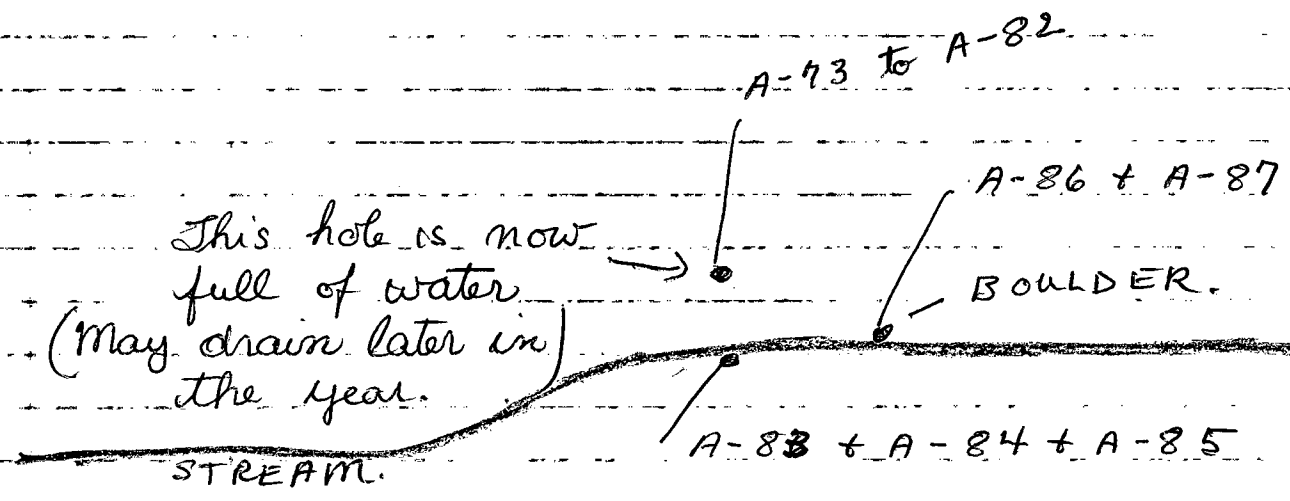 A-73 to A-82
A-86 + A-87
This hole is now
full of water
(May drain later in)
the year.
BOULDER.
A-83 + A-84 + A-85
STREAM.